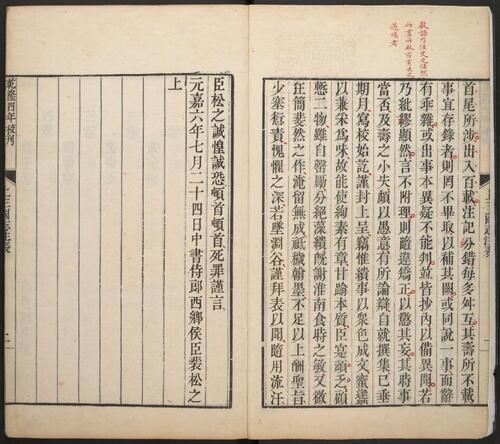 首尾所涉出入百載注記紛錯每多舛互其壽所不載
事宜存錄者則罔不畢取以補其闕或同說一事而辭
有乖雜或出事本異疑不能判並皆抄內以備異聞若
乃紕繆顯然言不附理則隨違矯正以懲其妄其時事
當否及壽之小失頗以愚意有所論辯自就撰集已垂
期月寫校始訖謹封上呈竊惟繢事以衆色成文蜜蠭
以兼采為味故能使絢素有章甘踰本質臣寔頑乏顧
慙二物雖自罄勵分絕藻繢旣謝淮南食時之敏又微
狂簡斐然之作淹留無成祗穢翰墨不足以上酬聖旨
少塞愆責愧懼之深若墜淵谷謹拜表以聞隨用流汗
臣松之誠惶誠恐頓首頓首死罪謹言
元嘉六年七月二十四日中書侍郎西鄉侯臣裴松之
上
乾隆四年校刊
上三國志注表
二